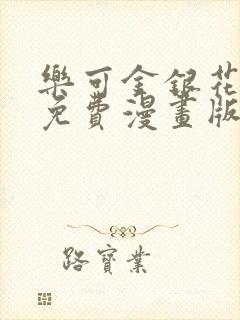 樂可金銀花
免費漫畫版
路寶業